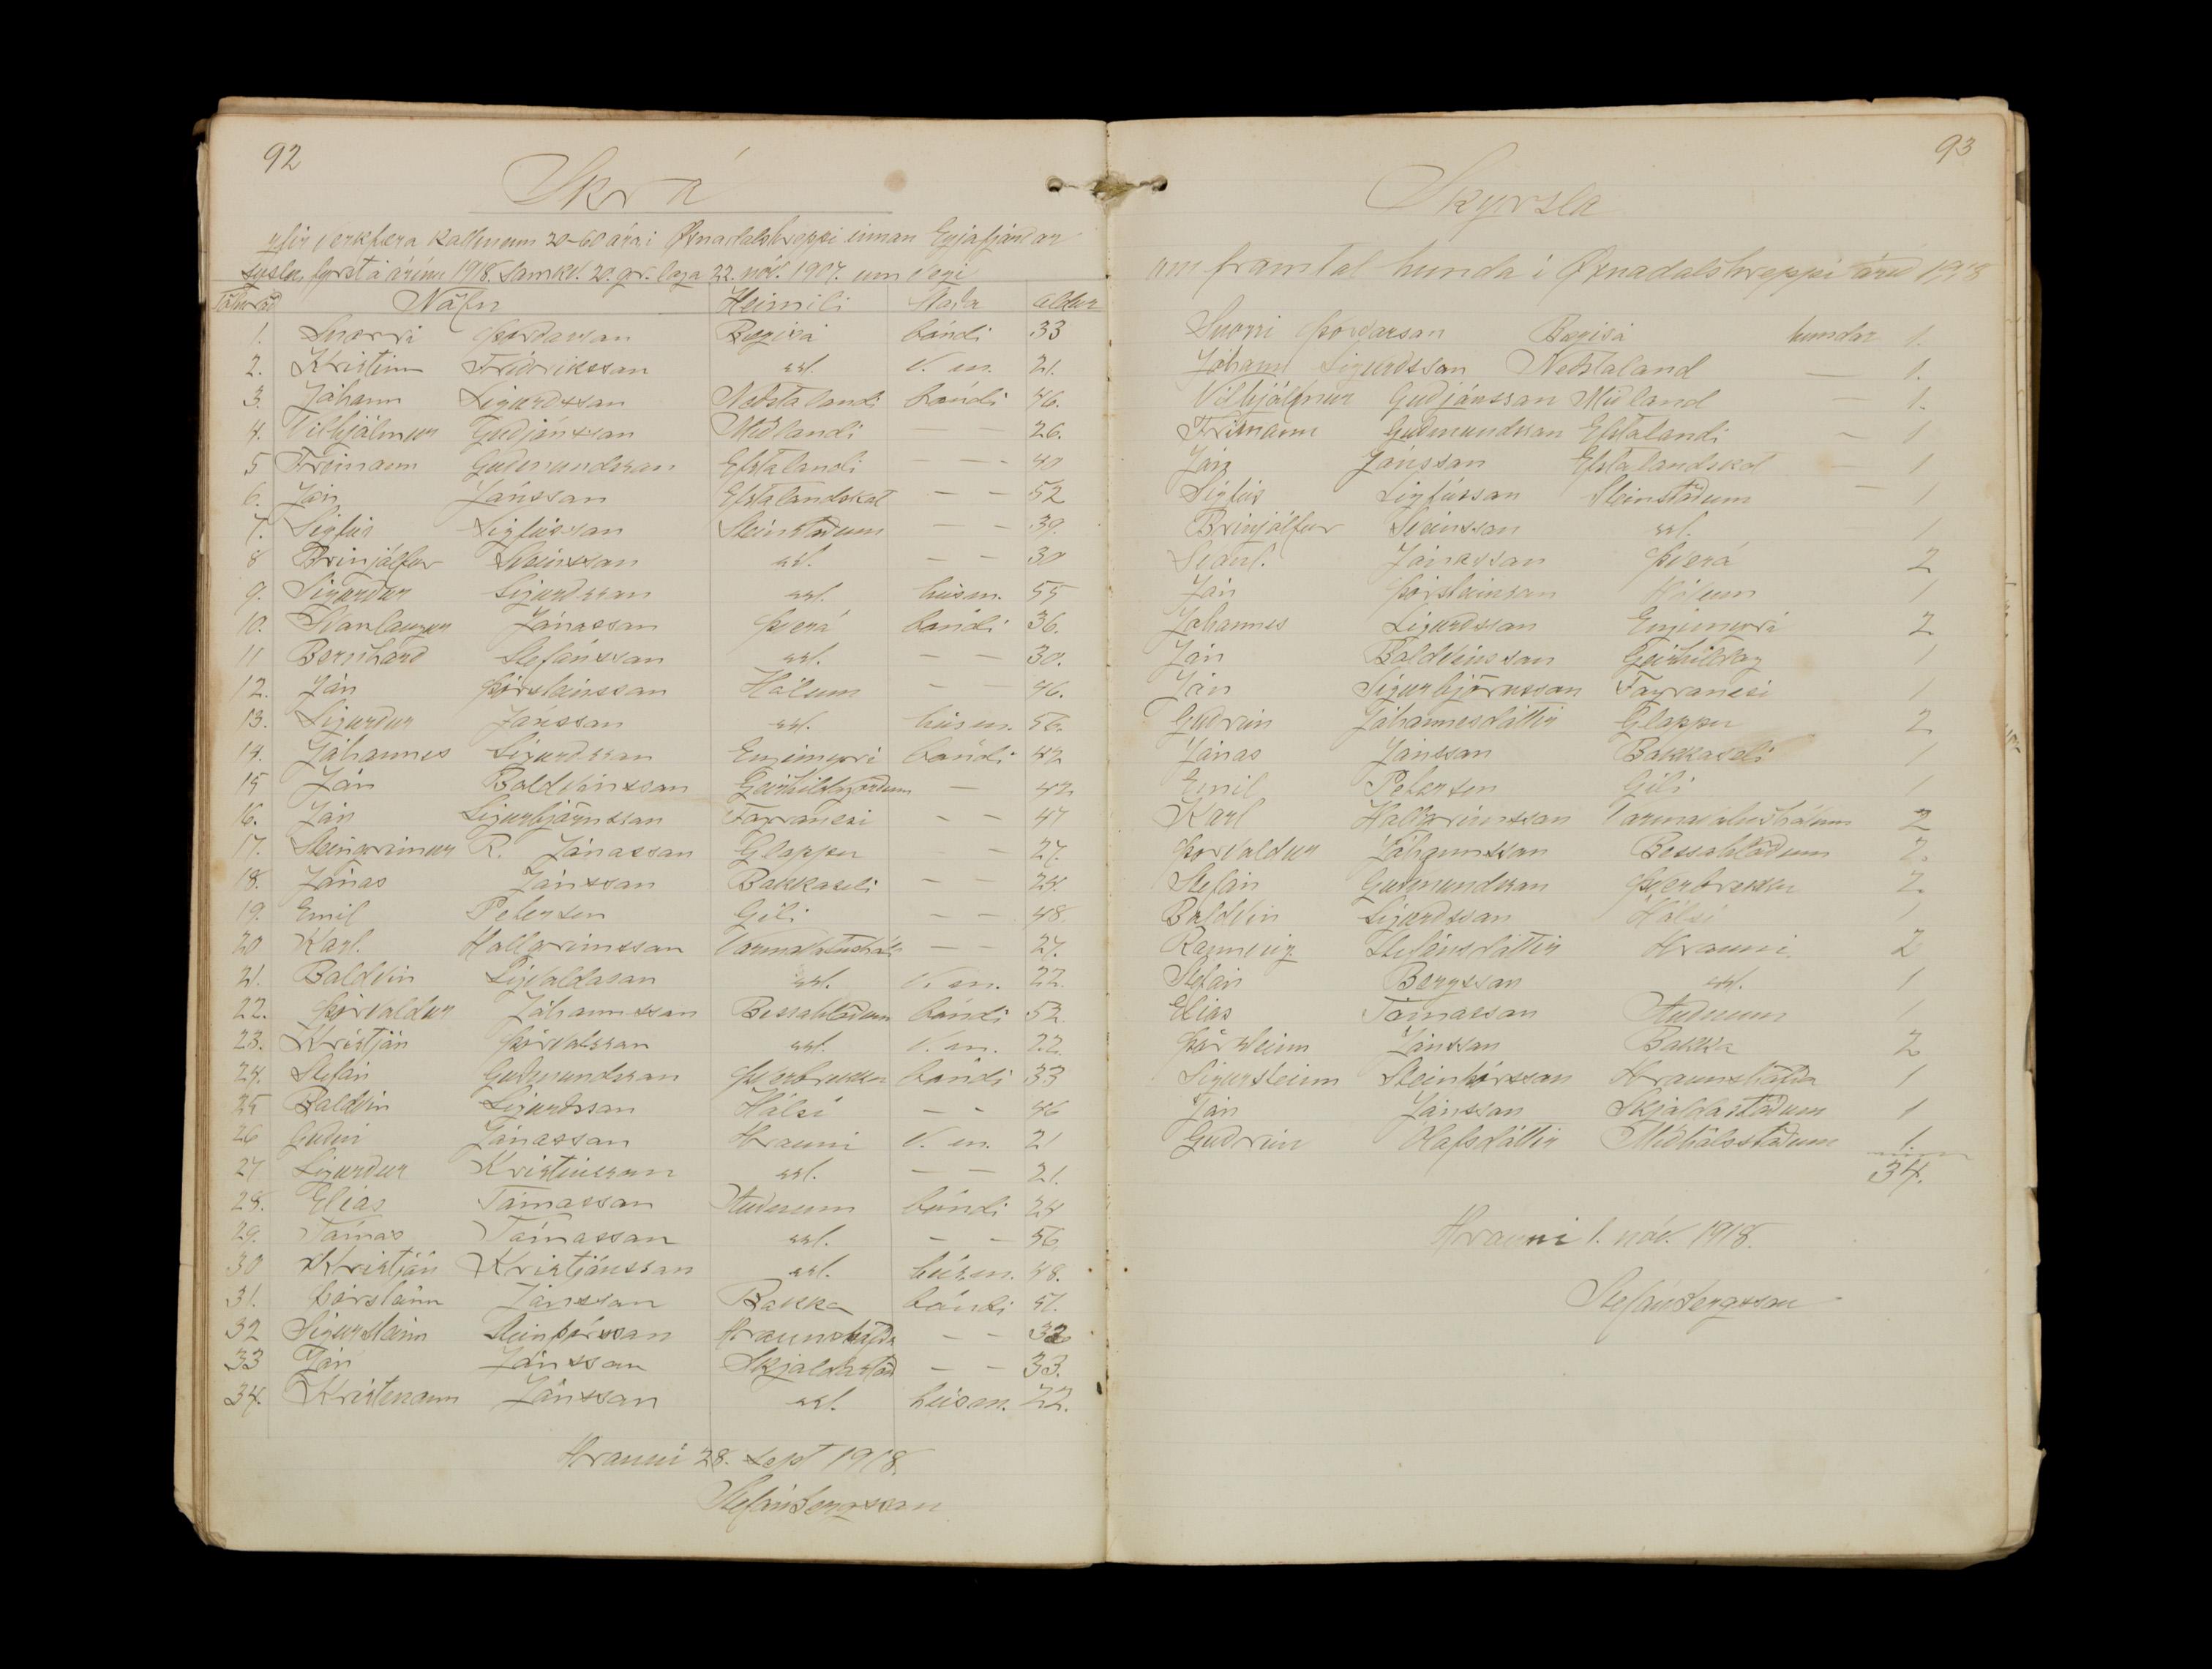 92
Skrá
yfir verkfæra kallmenn 20-60 ára í Øxnadalshreppi innan Eyjafjarðar
syslu, fyrst á árinu 1918. samkv. 20. gr. laga 22. nóv. 1907. um vegi
Töluröð Nöfn Heimili Staða aldur
1. Snorri Þórðarson Bægisá bóndi 33
2. Kristinn Friðriksson ssl. V. m. 21.
3. Jóhann Sigurðsson Neðstalandi bóndi 46.
4. Vilhjálmur Guðjónsson Miðlandi — — 26.
5 Frímann Guðmundsson Efstalandi — — 40
6. Jón Jónsson Efstalandskot — — 52
7. Sigfús Sigfússon Steinstöðum — — 39.
8 Brinjólfur Sveinsson ssl. — — 30
9. Sigurður Sigurðsson ssl. húsm. 55
10. Svanlaugur Jónasson Þverá bóndi 36.
11 Bernharð Stefánsson ssl. — — 30.
12. Jón Þorsteinsson Hólum — — 46.
13. Sigurður Jónsson ssl. húsm. 56.
14. Jóhannes Sigurðsson Engimyri bóndi 42
15 Jón Baldvinsson Geirhildagörðum — 42
16. Jón Sigurbjörnsson Fagranesi — — 47
17. Steingrímur R. Jónasson Gloppu — — 27.
18. Jónas Jónsson Bakkaseli — — 24.
19. Emil Petersen Gili — — 48.
20 Karl. Hallgrímsson Varmavatnshól. — — 27.
21. Baldvin Sigvaldason ssl. V. m. 22.
22. Þorvaldur Jóhannsson Bessahlöðum bóndi 52.
23. Kristján Þorvalsson ssl. V. m. 22.
24. Stefán Guðmundsson Þverbrekku bóndi 33
25 Baldvin Sigurðsson Hólsí — - 46
26 Guðni Jónasson Hrauni V. m. 21
27 Sigurður Kristinsson ssl. — — 21.
28. Elías Tómasson Auðnum bóndi 24
29. Tómas Tómasson ssl. — - 56
30 Kristján Kristjánsson ssl. húsm. 48.
31. Þorsteinn Jónsson Bakka bóndi 51.
32 Sigursteinn Steinþórsson Hraunshöfða — — 32
33 Jón Jónsson Skjaldastöð — — 33.
34. Kristmann Jónsson ssl. húsm. 22.
Hrauni 28. sept 1918.
Stefán Bergsson
93
Skyrsla
um framtal hunda í Øxnadalshreppi árið 1918
Snorri Þórðarson Bægisá hundar 1.
Jóhann Sigurðsson Neðstaland — 1.
Vilhjálmur Guðjónsson Miðland — 1.
Frímann Guðmundsson Efstalandi — 1
Jón Jónsson Efstalandskot — 1
Sigfús Sigfússon Steinstöðum — 1
Brinjólfur Sveinsson ssl. 1
Svanl. Jónasson Þverá 2
Jón Þorsteinsson Hólum 1
Jóhannes Sigurðsson Engimyri 2
Jón Baldvinsson Geirhildag 1
Jón Sigurbjörnsson Fagranesi 1
Guðrún Jóhannesdóttir Gloppu 2
Jónas Jónsson Bakkaseli 1
Emil Petersen Gili 1
Karl Hallgrímsson Varmavatnshólum 2
Þorvaldur Jóhannsson Bessahlöðum 2.
Stefán Guðmundsson Þverbrekku 2.
Baldvin Sigurðsson Hólsí 1
Rannveig Stefánsdóttir Hrauni 2
Stefán Bergsson ssl. 1
Elías Tómasson Auðnum 1
Þorsteinn Jónsson Bakka 2
Sigursteinn Steinþórsson Hraunshöfða 1
Jón Jónsson Skjaldastöðum 1
Guðrún Olafsdóttir Miðhálsstöðum 1.
34.
Hrauni 1. nóv. 1918.
Stefán Bergsson